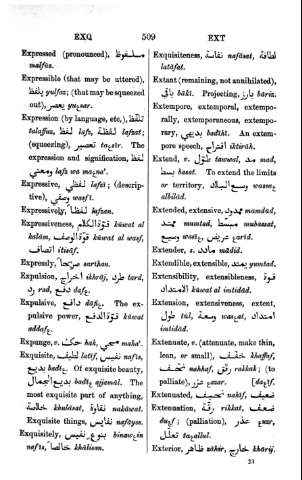 EXQ 509 EXT
Expressed (pronounced), ملفوظ
malfūz.
Expressible (that may be uttered),
يلفظ yulfaz; (that may be squeezed
out), يعصر
Expression (by language, etc.), تلفظ
talaffuz, لفظ lafz, لفظة lafzat;
(squeezing), تعصير The
expression and signification, لفظ
ومعني lafz wa
Expressive, لفظي lafzī; (descrip-
tive), وصفي wasfī.
Expressively, لفظا lafzan.
Expressiveness, قوة الكلام kūwat al
kalām, قوة الوصف kūwat al wasf,
اتصاف ittisāf.
Expressly, صارحا sarīhan.
Expulsion, اخراج ikhrāj, طرد tard,
رد rad, دفع
Expulsive, دافع The ex-
pulsive power, قوة الدفع kūwat
Expunge, v. حك hak, محي
Exquisite, لطيف latīf, نفيس nafīs,
بديع Of exquisite beauty,
بديع الجمال The
most exquisite part of anything,
خلاصة khulāsat, نقاوة nakāwat.
Exquisite things, نفايس nafāyes.
Exquisitely, بنوع نفيس
nafīs, خالصا khālisan.
Exquisiteness, نفاسة nafāsat, لطافة
latāfat.
Extant (remaining, not annihilated),
باقي bākī. Projecting, بارز bāriz.
Extempore, extemporal, extempo-
rally, extemporaneous, extempo-
rary, بديهي badīhī. An extem-
pore speech, اقتراح iktirāh.
Extend, v. طول tawwal, مد mad,
بسط basat. To extend the limits
or territory, وسع البلاد
albilād.
Extended, extensive, ممدود mamdūd,
ممتد mumtad, مبسط mubassat,
وسيع عريض
Extender, s. مادد mādid.
Extendible, extensible, يمتد yumtad.
Extensibility, extensibleness, قوة
الامتداد kūwat al imtidād.
Extension, extensiveness, extent,
طول tūl, وسعة امتداد
imtidād.
Extenuate, v. (attenuate, make thin,
lean, or small), خفف khaffaf,
نحف nahhaf, رقق rakkak; (to
palliate), عزر
Extenuated, نحيف nahīf, ضعيف
Extenuation, رقة rikkat, ضعف
(palliation), عذر
تعلل
Exterior, ظاهر zāhir, خارج khārij.